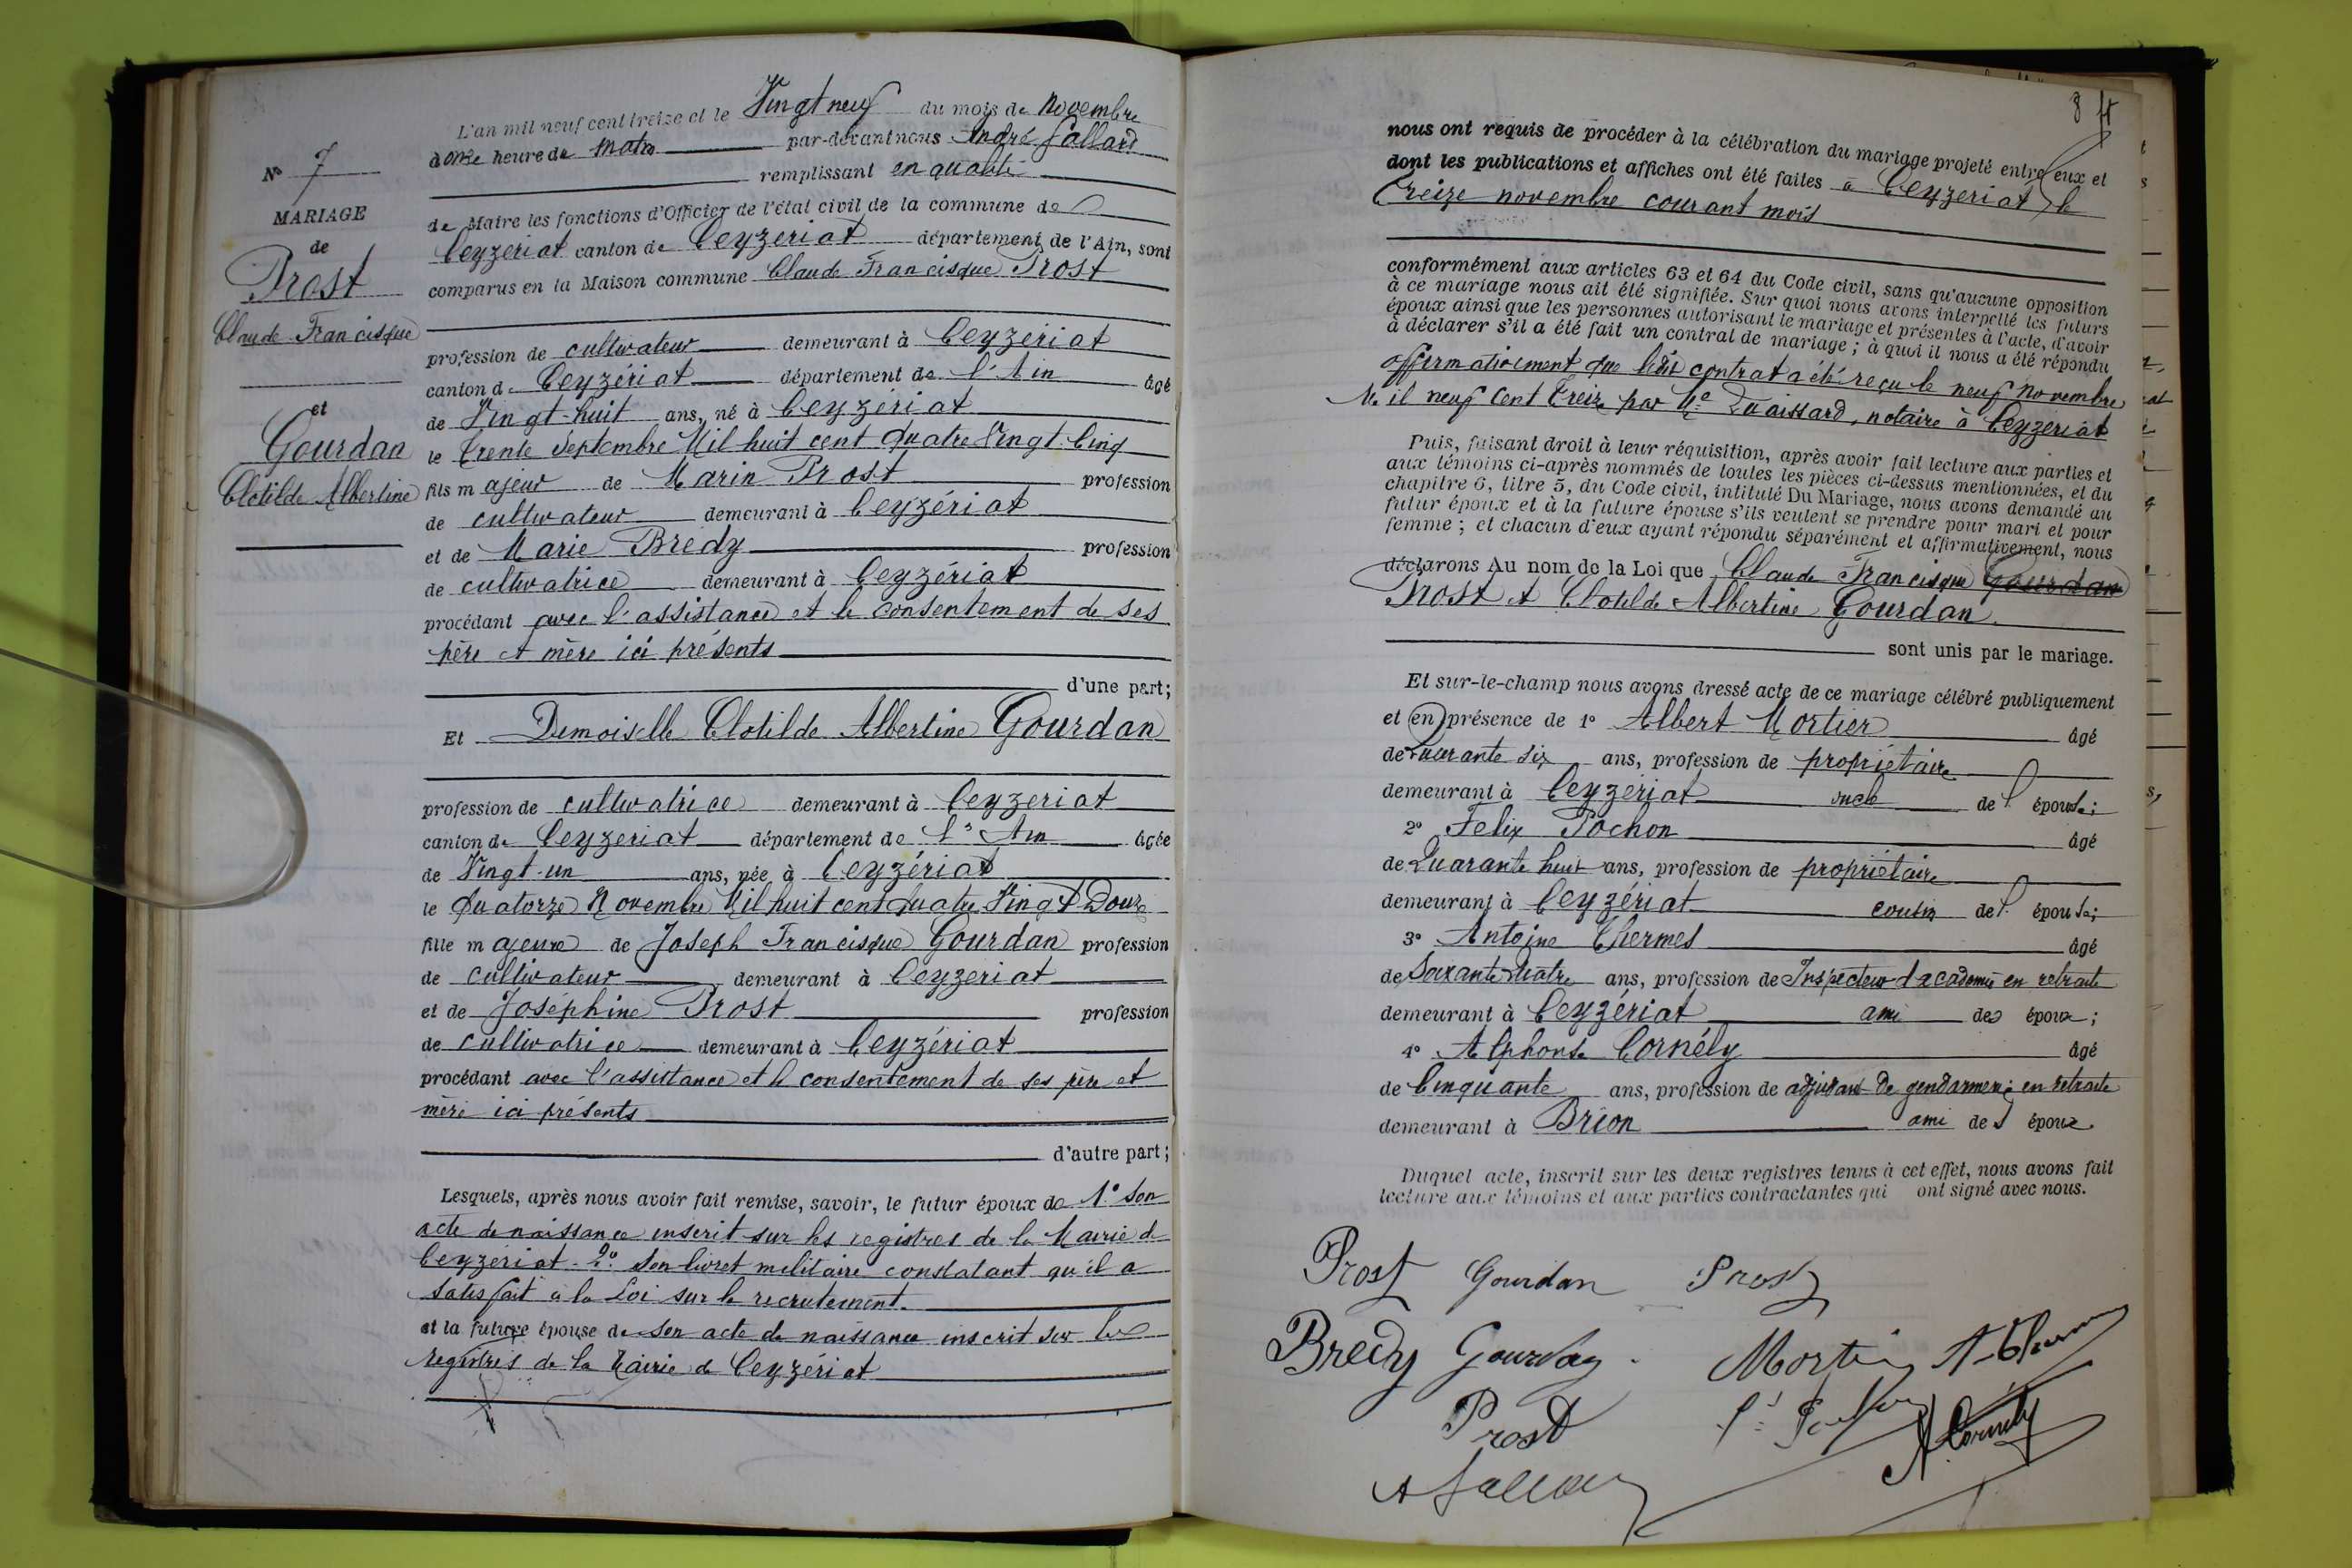 L'an mil neuf cent treize et le Vingt neuf du mois de Novembre
à onze heure de matin par-devant nous André Sallard
remplissant en qualité
de Maire les fonctions d'Officier de l'état civil de la commune de
Ceyzeriat canton de Ceyzeriat département de l'Ain, sont
comparus en la Maison commune Claude Francisque Prost
profession de cultivateur demeurant à Ceyzériat
canton de Ceyzériat département de l'Ain âgé
de Vingt-huit ans, né à Ceyzeriat
le trente Septembre Mil huit cent quatre Vingt Cinq
fils majeur de Marin Prost profession
de cultivateur demeurant à Ceyzériat
et de Marie Bredy profession
de cultivatrice demeurant à Ceyzériat
procédant avec l'assistance et le consentement de ses
père et mère ici présents
d'une part;
Et Demoiselle Clotilde Albertine Gourdan
profession de cultivatrice demeurant à Ceyzeriat
canton de Ceyzeriat département de l'Ain âgée
de Vingt-un ans, née à Ceyzériat
le quatorze Novembre Mil huit cent quatre Vingt Douze
fille majeure de Joseph Francisque Gourdan profession
de cultivateur demeurant à Ceyzeriat
et de Joséphine Prost profession
de cultivatrice demeurant à Ceyzériat
procédant avec l'assistance et le consentement de ses père et
mère ici présents
d'autre part;
Lesquels, après nous avoir fait remise, savoir, le futur époux de 1° Son
acte de naissance inscrit sur les registres de la Mairie de
Ceyzériat - 2° Son livret militaire constatant qu'il a
satisfait à la Loi sur le recrutement.
et la future épouse de son acte de naissance inscrit sur les
registres de la Mairie de Ceyzériat
N° 7
MARIAGE
de
Prost
Claude Francisque
et
Gourdan
Clotilde Albertine
8
nous ont requis de procéder à la célébration du mariage projeté entre eux et
dont les publications et affiches ont été faites à Ceyzeriat le
treize novembre courant mois
conformément aux articles 63 et 64 du Code civil, sans qu'aucune opposition
à ce mariage nous ait été signifiée. Sur quoi nous avons interpellé les futurs
époux ainsi que les personnes autorisant le mariage et présentes à l'acte, d'avoir
à déclarer s'il a été fait un contrat de mariage ; à quoi il nous a été répondu
affirmativement que ledit contrat a été reçu le neuf Novembre
Mil neuf Cent treize par Me Quaissard, notaire à Ceyzériat
Puis, faisant droit à leur réquisition, après avoir fait lecture aux parties et
aux témoins ci-après nommés de toutes les pièces ci-dessus mentionnées, et du
chapitre 6, titre 5, du Code civil, intitulé Du Mariage, nous avons demandé au
futur époux et à la future épouse s'ils veulent se prendre pour mari et pour
femme ; et chacun d'eux ayant répondu séparément et affirmativement, nous
déclarons Au nom de la Loi que Claude Francisque Gourdan
Prost et Clotilde Albertine Gourdan
sont unis par le mariage.
Et sur-le-champ nous avons dressé acte de ce mariage célébré publiquement
et en présence de 1° Albert Mortier âgé
de Quarante Six ans, profession de propriétaire
demeurant à Ceyzériat oncle de l' épouse;
2° Felix Pochon âgé
de Quarante huit ans, profession de propriétaire
demeurant à Ceyzériat cousin de l' épouse;
3° Antoine Thermes âgé
de Soixante Quatre ans, profession de Inspecteur d'académie en retraite
demeurant à Ceyzériat ami des époux ;
4° Alphonse Cornély âgé
de Cinquante ans, profession de adjudant de gendarmerie en retraite
demeurant à Brion ami des époux.
Duquel acte, inscrit sur les deux registres tenus à cet effet, nous avons fait
lecture aux témoins et aux parties contractantes qui ont signé avec nous.
Prost Gourdan Prost
Bredy Gourdan Mortier A. Thermes
Prost A Cornély
A Sallard